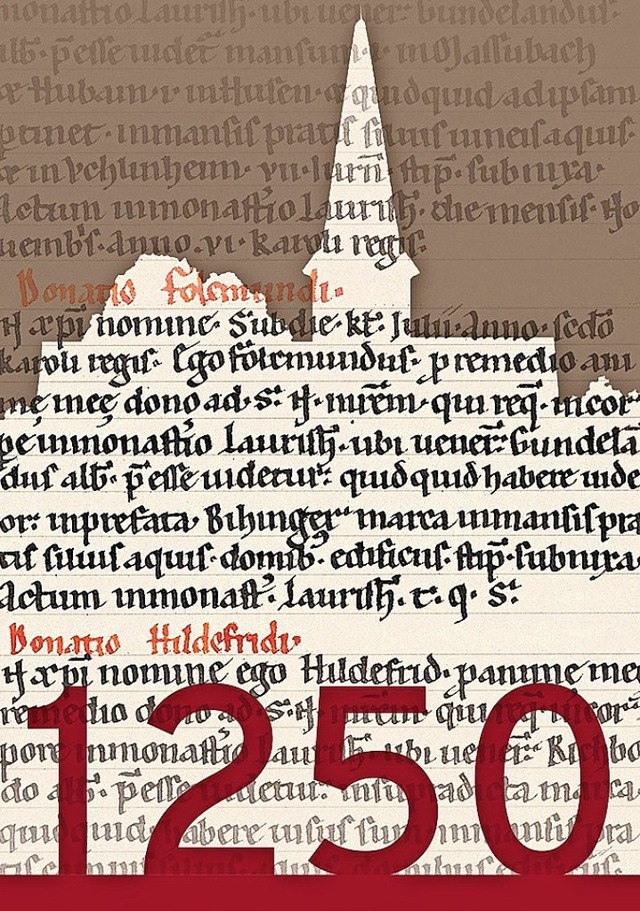 monastio Laurish. ubi uener. bundelandus.
alb. p̄esse uidet mansum. i. in Massubach
& Hubam. i. in Husen. & quidquid adipsam
ptinet. inmansis pratis siluis uineis aquis.
& in Vchlunheim. vii. iurn. stip. subnixa.
Actum inmonastio Laurish. die mensis. No
uembs. Anno. vi. karoli regis.
Donatio folcmundi.
In xp̄i nomine. Subdie. kt. Julii. Anno. scdo
karoli regis. Ego folcmundus. p remedio ani
me meę dono ad. S. N. mrem. qui req. incor
pe inmonastio Laurish. ubi uener. Gundela
dus alb. p̄esse uidetur. quidquid habere uide
or. inprefata. Bihinger marca inmansis pra
tis siluis aquis. domib. edificiis. stip. subnixa.
Actum inmonast. Laurish. t. q. S.
Donatio Hildefridi.
In xp̄i nomine ego Hildefrid. p anime meę
remedio dono ad. S. N. mrem. qui req. incor
pore inmonastio Laurish. ubi uener. Richbo
do alb. p̄esse uidetur. insupradicta marca
quidquid habere uisus sum inmansis pra
1250